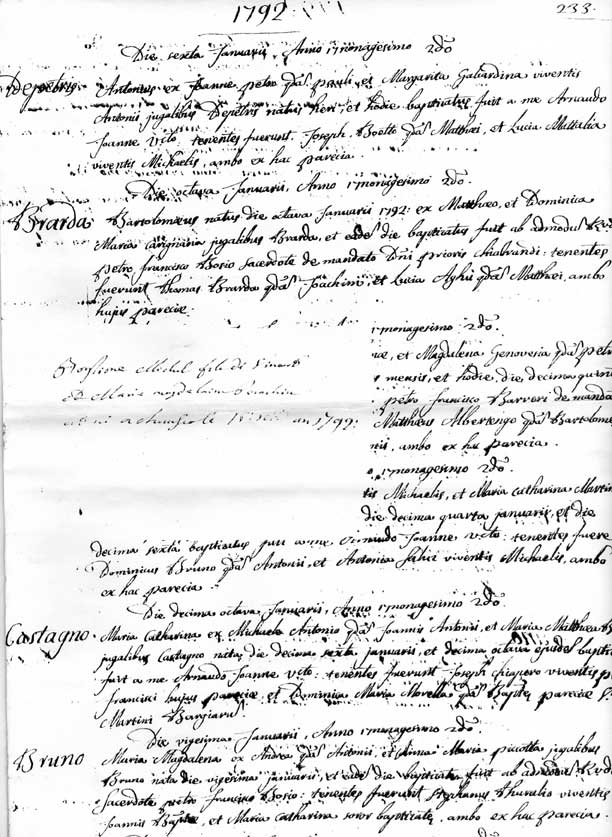 1792.
233.
Die sexta Januarii, Anno 17monagesimo 2do
Depetris. Antonius ex Joanne petro qdm pauli, et Margarita Galiardina viventis
Antonii jugalibus Depetris natus heri, et hodie baptizatus fuit a me Arnaudo
Joanne Vcto. tenentes fuerunt Joseph Boetto qdm Matthei, et Lucia Mattalia
viventis Michaelis, ambo ex hac parecia.
Die octava Januarii, Anno 17monagesimo 2do.
Brarda Bartolomeus natus die octava Januarii 1792: ex Mattheo, et Dominica
Maria jugalibus Brarda, et eadem die baptizatus fuit ab admodum
petro francisco Bosio sacerdote de mandato Dni prioris Chiabrandi: tenentes
fuerunt Thomas Brarda qdm Joachimi, et Lucia qdm Matthei, ambo
hujus pareciæ
17monagesimo 2do.
et Magdalena Genovesia qdm petri
Michel fils de Vincent
mensis, et hodie, die decima quinta
Et Marie magdelaine
petro francisco Barberi de mandato
an 1799.
Mattheus Albertengo qdm Bartolomei
ambo ex hac parecia.
17monagesimo 2do.
Michaelis, et Maria Catharina Martin
die decima quarta januarii, et die
decima sexta baptizatus fuit a me Arnaudo Joanne Vcto: tenentes fuere
Dominicus Bruno qdm Antonii, et Antonia Salici viventis Michaelis, ambo
ex hac parecia
Die decima octava Januarii, Anno 17monagesimo 2do
Castagno. Maria Catharina ex Michaele Antonio qdm Joannis Antonii, et Maria Matthea
jugalibus Castagno nata die decima sexta januarii, et decima octava ejusdem
fuit a me Arnaudo Joanne Vcto: tenentes fuerunt Joseph chiapero viventis
francisci hujus pareciæ et Dominica Maria Morella qdm Baptæ pareciæ
Martini Bargiarum
Die vigesima Januarii, Anno 17monagesimo 2do
Bruno Maria Magdalena ex Andrea qdm Antonii, et Anna Maria picotta jugalibus
Bruno nata die vigesima januarii, et eadem die baptizata fuit ab admodum
Sacerdote petro francisco Bosio: tenentes fuerunt Stephanus Thurello viventis
Joannis Baptæ, et Maria Catharina soror baptizatæ, ambo ex hac parecia.